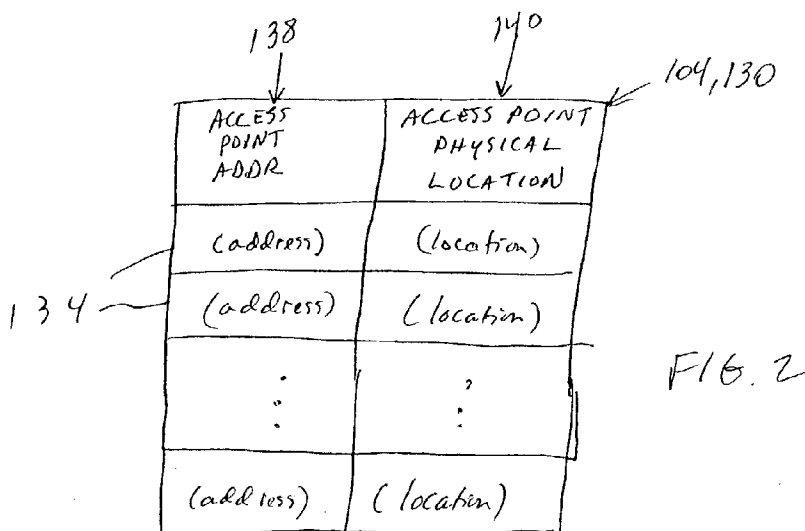 138
140
104,130
ACCESS
POINT
ADDR
ACCESS POINT
PHYSICAL
LOCATION
(address)
(location)
134
(address)
(location)
FIG. 2
(address)
(location)